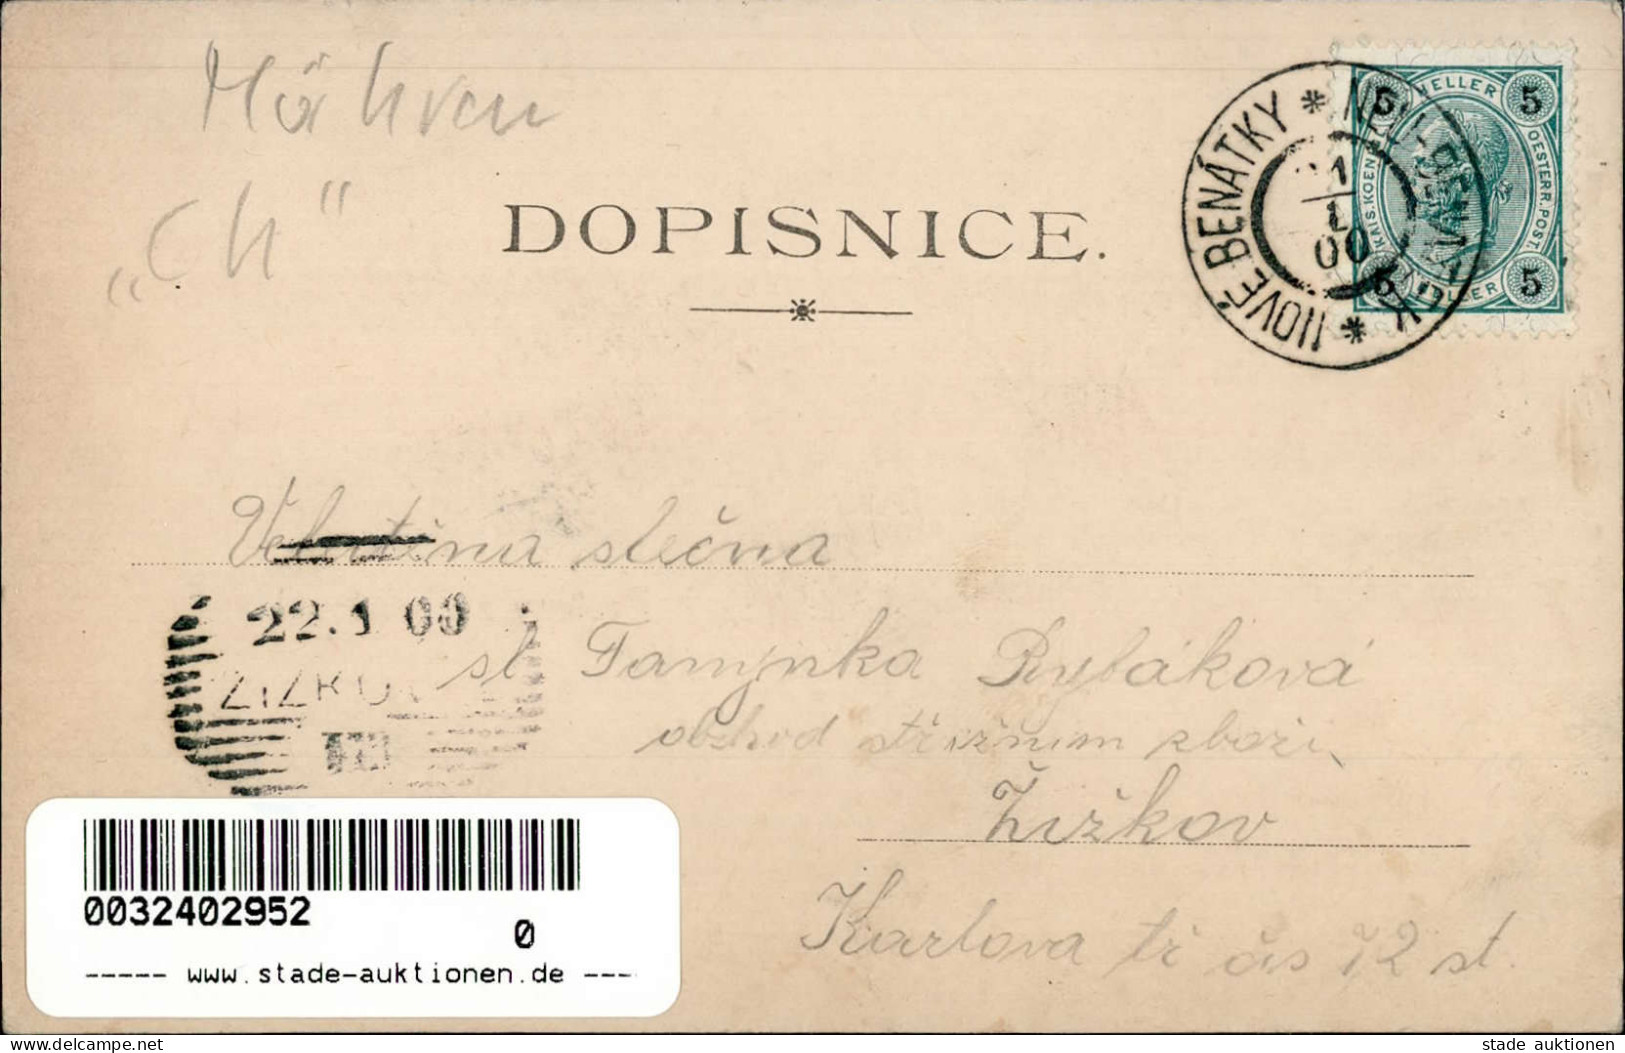 Mähren
„Ch"
DOPISNICE.
NOVÉ BENÁTKY
1
1
00
HELLER
5 5
KAIS. KOEN.
OESTERR. POST.
5 5
slečna
22.1 00
sl Fanynka Rybáková
ŽIŽKOV
obchod střižním zboží
Žižkov
Karlova tř čís 72 st.
0032402952
0
----- www.stade-auktionen.de ---
www.delcampe.net
stade auktionen